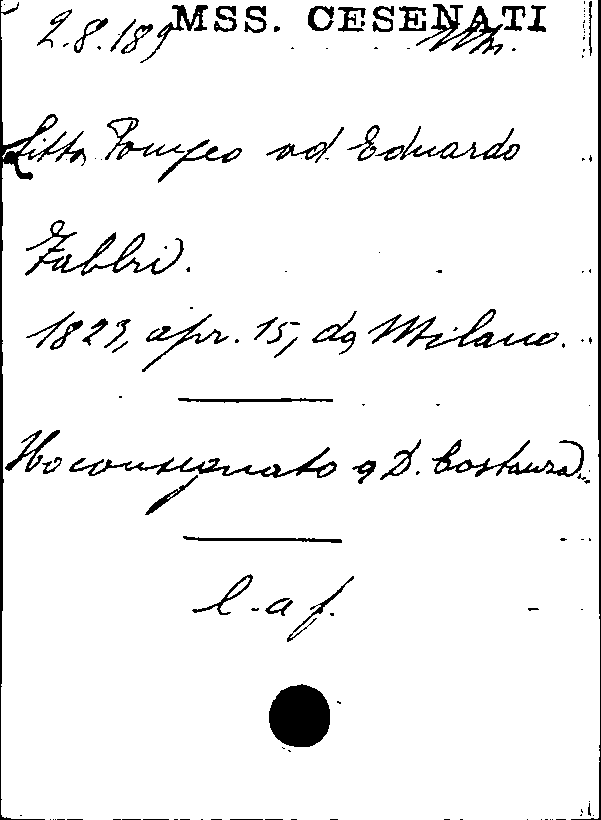 MSS. CESENATI
2.8.189
Litta Pompeo ad Eduardo
Fabbri.
1823, apr. 15, da Milano.
Ho consegnato a D. Costanza
l. a f.